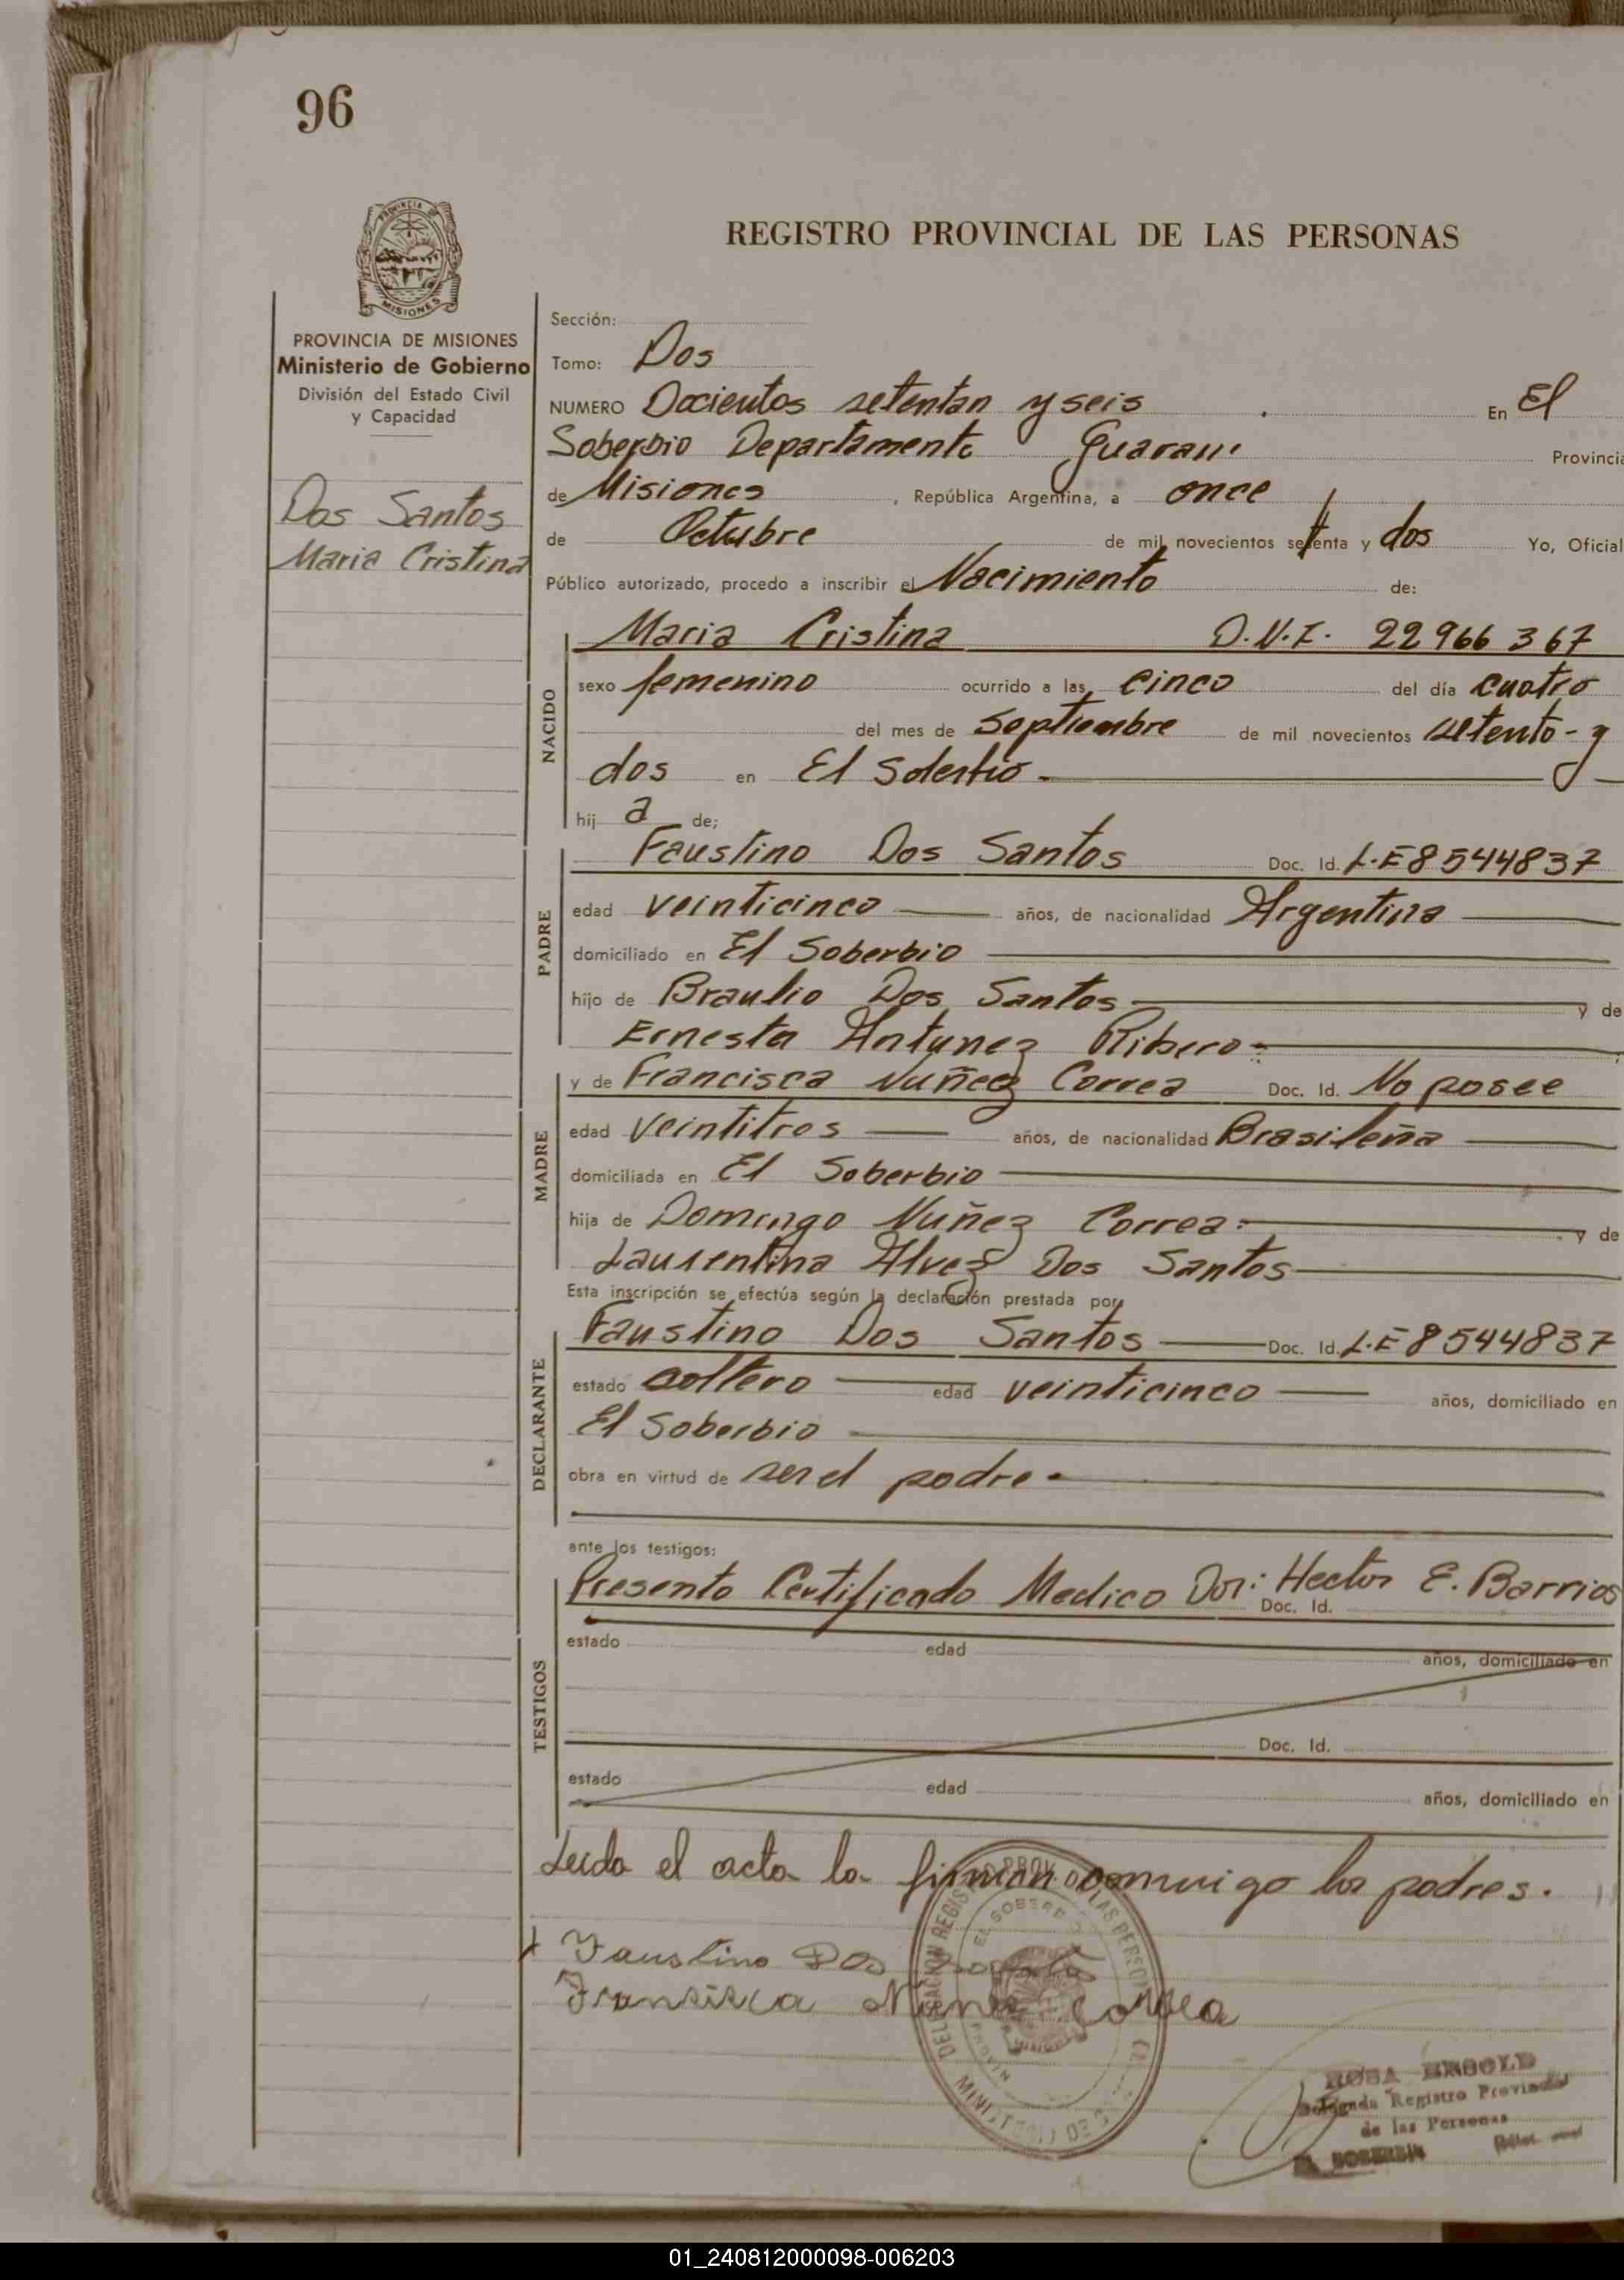 96
PROVINCIA DE
MISIONES
REGISTRO PROVINCIAL DE LAS PERSONAS
PROVINCIA DE MISIONES
Ministerio de Gobierno
División del Estado Civil
y Capacidad
Dos Santos
Maria Cristina
Sección:
Tomo: Dos
NUMERO Docientos setentan y seis En El
Soberbio Departamento Guarani Provincia
de Misiones , República Argentina, a once
de Octubre de mil novecientos setenta y dos Yo, Oficial
Público autorizado, procedo a inscribir el Nacimiento de:
NACIDO
Maria Cristina D.N.I. 22966367
sexo femenino ocurrido a las cinco del día cuatro
del mes de Septiembre de mil novecientos setenta - y
dos en El Soberbio
hij a de;
PADRE
Faustino Dos Santos Doc. Id. L.E 8544837
edad veinticinco años, de nacionalidad Argentina
domiciliado en El Soberbio
hijo de Braulio Dos Santos y de
Ernesta Antunez Ribero
MADRE
y de Francisca Nuñez Correa Doc. Id. No posee
edad veintitres años, de nacionalidad Brasileña
domiciliada en El Soberbio
hija de Domingo Nuñez Correa y de
Laurentina Alvez Dos Santos
Esta inscripción se efectúa según la declaración prestada por
DECLARANTE
Faustino Dos Santos Doc. Id. L.E 8544837
estado soltero edad veinticinco años, domiciliado en
El Soberbio
obra en virtud de ser el padre
ante los testigos:
TESTIGOS
Presento Certificado Medico Dor: Hector E. Barrios
Doc. Id.
estado edad años, domiciliado en
Doc. Id.
estado edad años, domiciliado en
Leida el acta la firman conmigo los padres.
Faustino Dos Santos
Fransisca Nunes Correa
ROSA
Registro Provincial
de las Personas
SOBERBIO
01_240812000098-006203